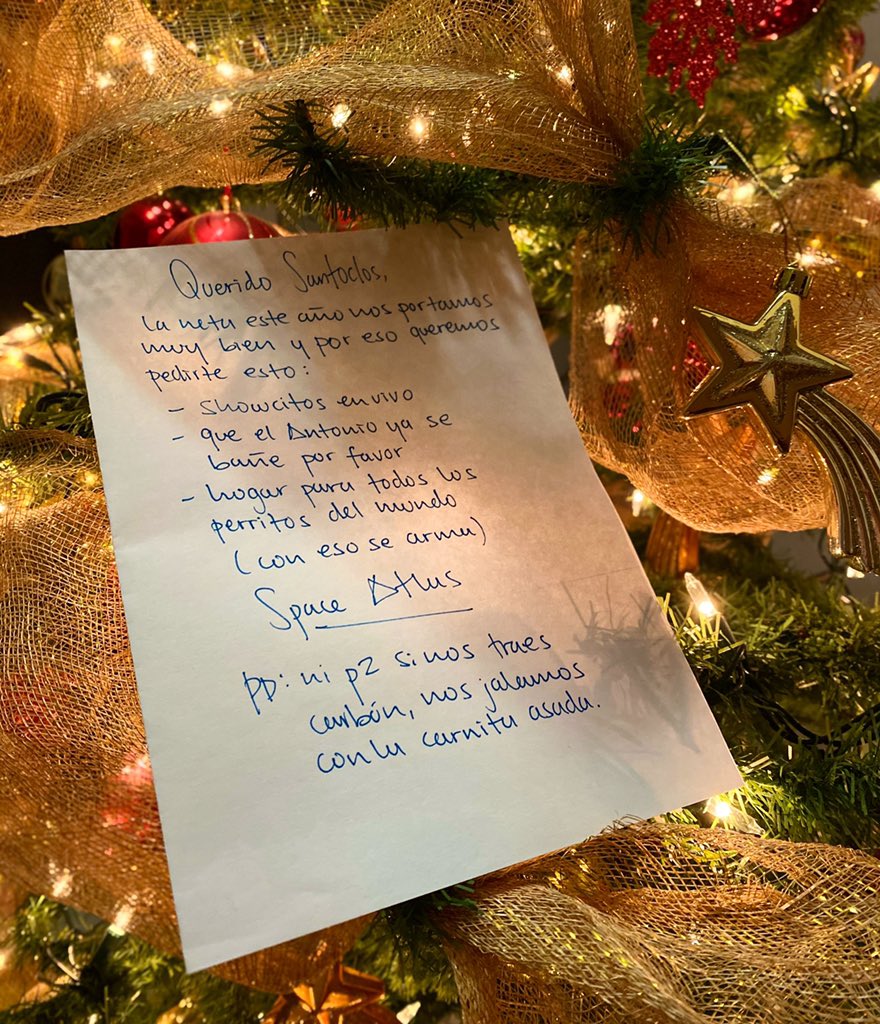 Querido Santoclos,
la neta este año nos portamos
muy bien y por eso queremos
pedirte esto:
- showcitos en vivo
- que el Antonio ya se
bañe por favor
- hogar para todos los
perritos del mundo
(con eso se arma)
Space Atlas
PD: ni p2 si nos traes
carbón, nos jalamos
con la carnita asada.